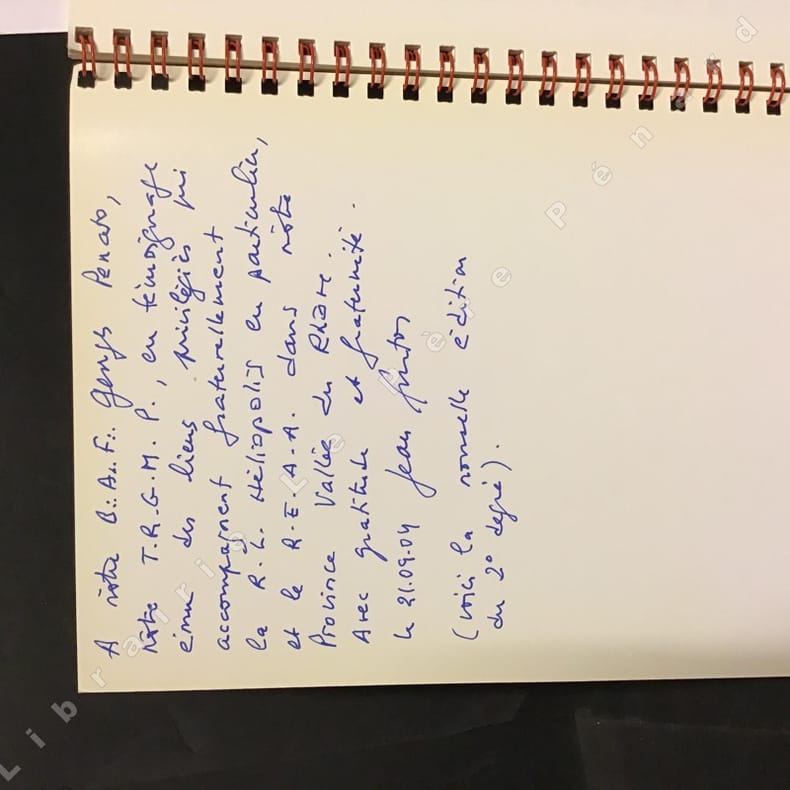 A nôtre B∴A∴F∴ Georges Penato,
nôtre T.R.G.M.P., en témoignage
ému des liens privilégiés qui
accompagnent fraternellement
la R.L. HéliopoliS en particulier,
et le R.E.A.A. dans nôtre
Province Vallée du Rhône.
Avec gratitude et fraternité.
le 21.09.04 Jean
(voici la nouvelle édition
du 2° degré).
Librairie Le Pépé Pénard